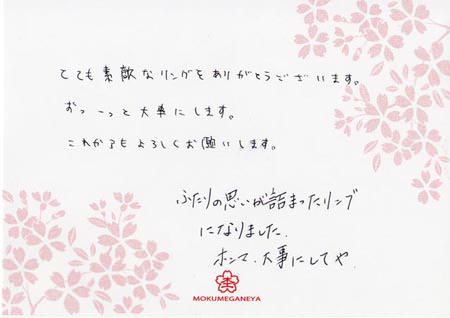 とても素敵なリングをありがとうございます。
ずっーっと大事にします。
これからもよろしくお願いします。
ふたりの思いが詰まったリング
になりました.
ホンマ、大事にしてや.
MOKUMEGANEYA